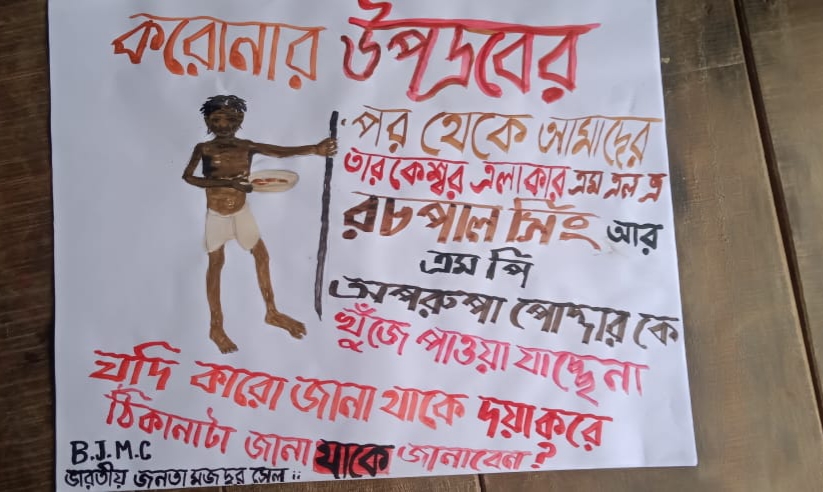 করোনার উপদ্রবের
পর থেকে আমাদের
তারকেশ্বর এলাকার এম এল এ
রচপাল সিং আর
এম পি
অপরুপা পোদ্দার কে
খুঁজে পাওয়া যাচ্ছেনা
যদি কারো জানা থাকে দয়াকরে
ঠিকানাটা জানা থাকে জানাবেন?
B.J.M.C
ভারতীয় জনতা মজদুর সেল ::